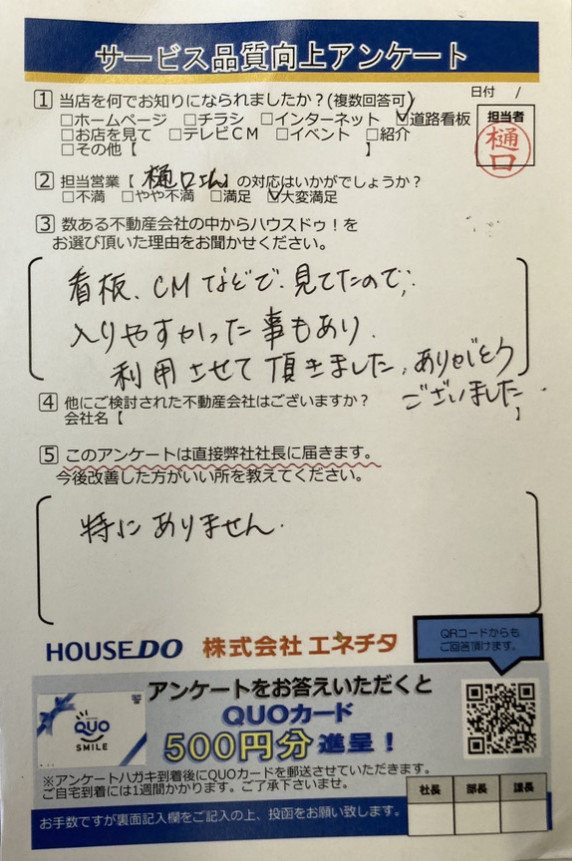 サービス品質向上アンケート
日付 /
1 当店を何でお知りになられましたか？(複数回答可)
□ホームページ □チラシ □インターネット ☑道路看板
□お店を見て □テレビCM □イベント □紹介
□その他【 】
担当者
樋口
2 担当営業【 樋口さん 】の対応はいかがでしょうか？
□不満 □やや不満 □満足 ☑大変満足
3 数ある不動産会社の中からハウスドゥ！を
お選び頂いた理由をお聞かせください。
看板、CMなどで見てたので、
入りやすかった事もあり、
利用させて頂きました。ありがとう
ございました。
4 他にご検討された不動産会社はございますか？
会社名【 】
5 このアンケートは直接弊社社長に届きます。
今後改善した方がいい所を教えてください。
特にありません。
HOUSE DO 株式会社 エネチタ
QRコードからも
ご回答頂けます。
アンケートをお答えいただくと
QUOカード
500円分 進呈！
QUO
SMILE
※アンケートハガキ到着後にQUOカードを郵送させていただきます。
ご自宅到着には1週間かかります。ご了承下さいませ。
社長 部長 課長
お手数ですが裏面記入欄をご記入の上、投函をお願い致します。